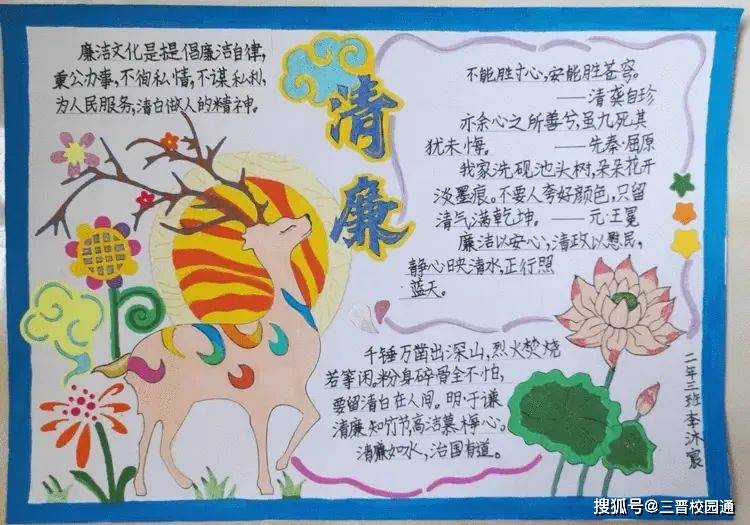 廉洁文化是提倡廉洁自律,
秉公办事,不徇私情,不谋私利,
为人民服务,清白做人的精神。
清廉
不能胜寸心,安能胜苍穹。
——清龚自珍
亦余心之所善兮,虽九死其
犹未悔。 ——先秦·屈原
我家洗砚池头树,朵朵花开
淡墨痕。不要人夸好颜色,只留
清气满乾坤。 ——元·王冕
廉洁以安心,清政以慰民,
静心映清水,正行照
蓝天。
千锤万凿出深山,烈火焚烧
若等闲。粉身碎骨全不怕,
要留清白在人间。明·于谦
清廉知竹节,高洁慕梅心。
清廉如水,治国有道。
二年三班李沐宸
搜狐号@三晋校园通